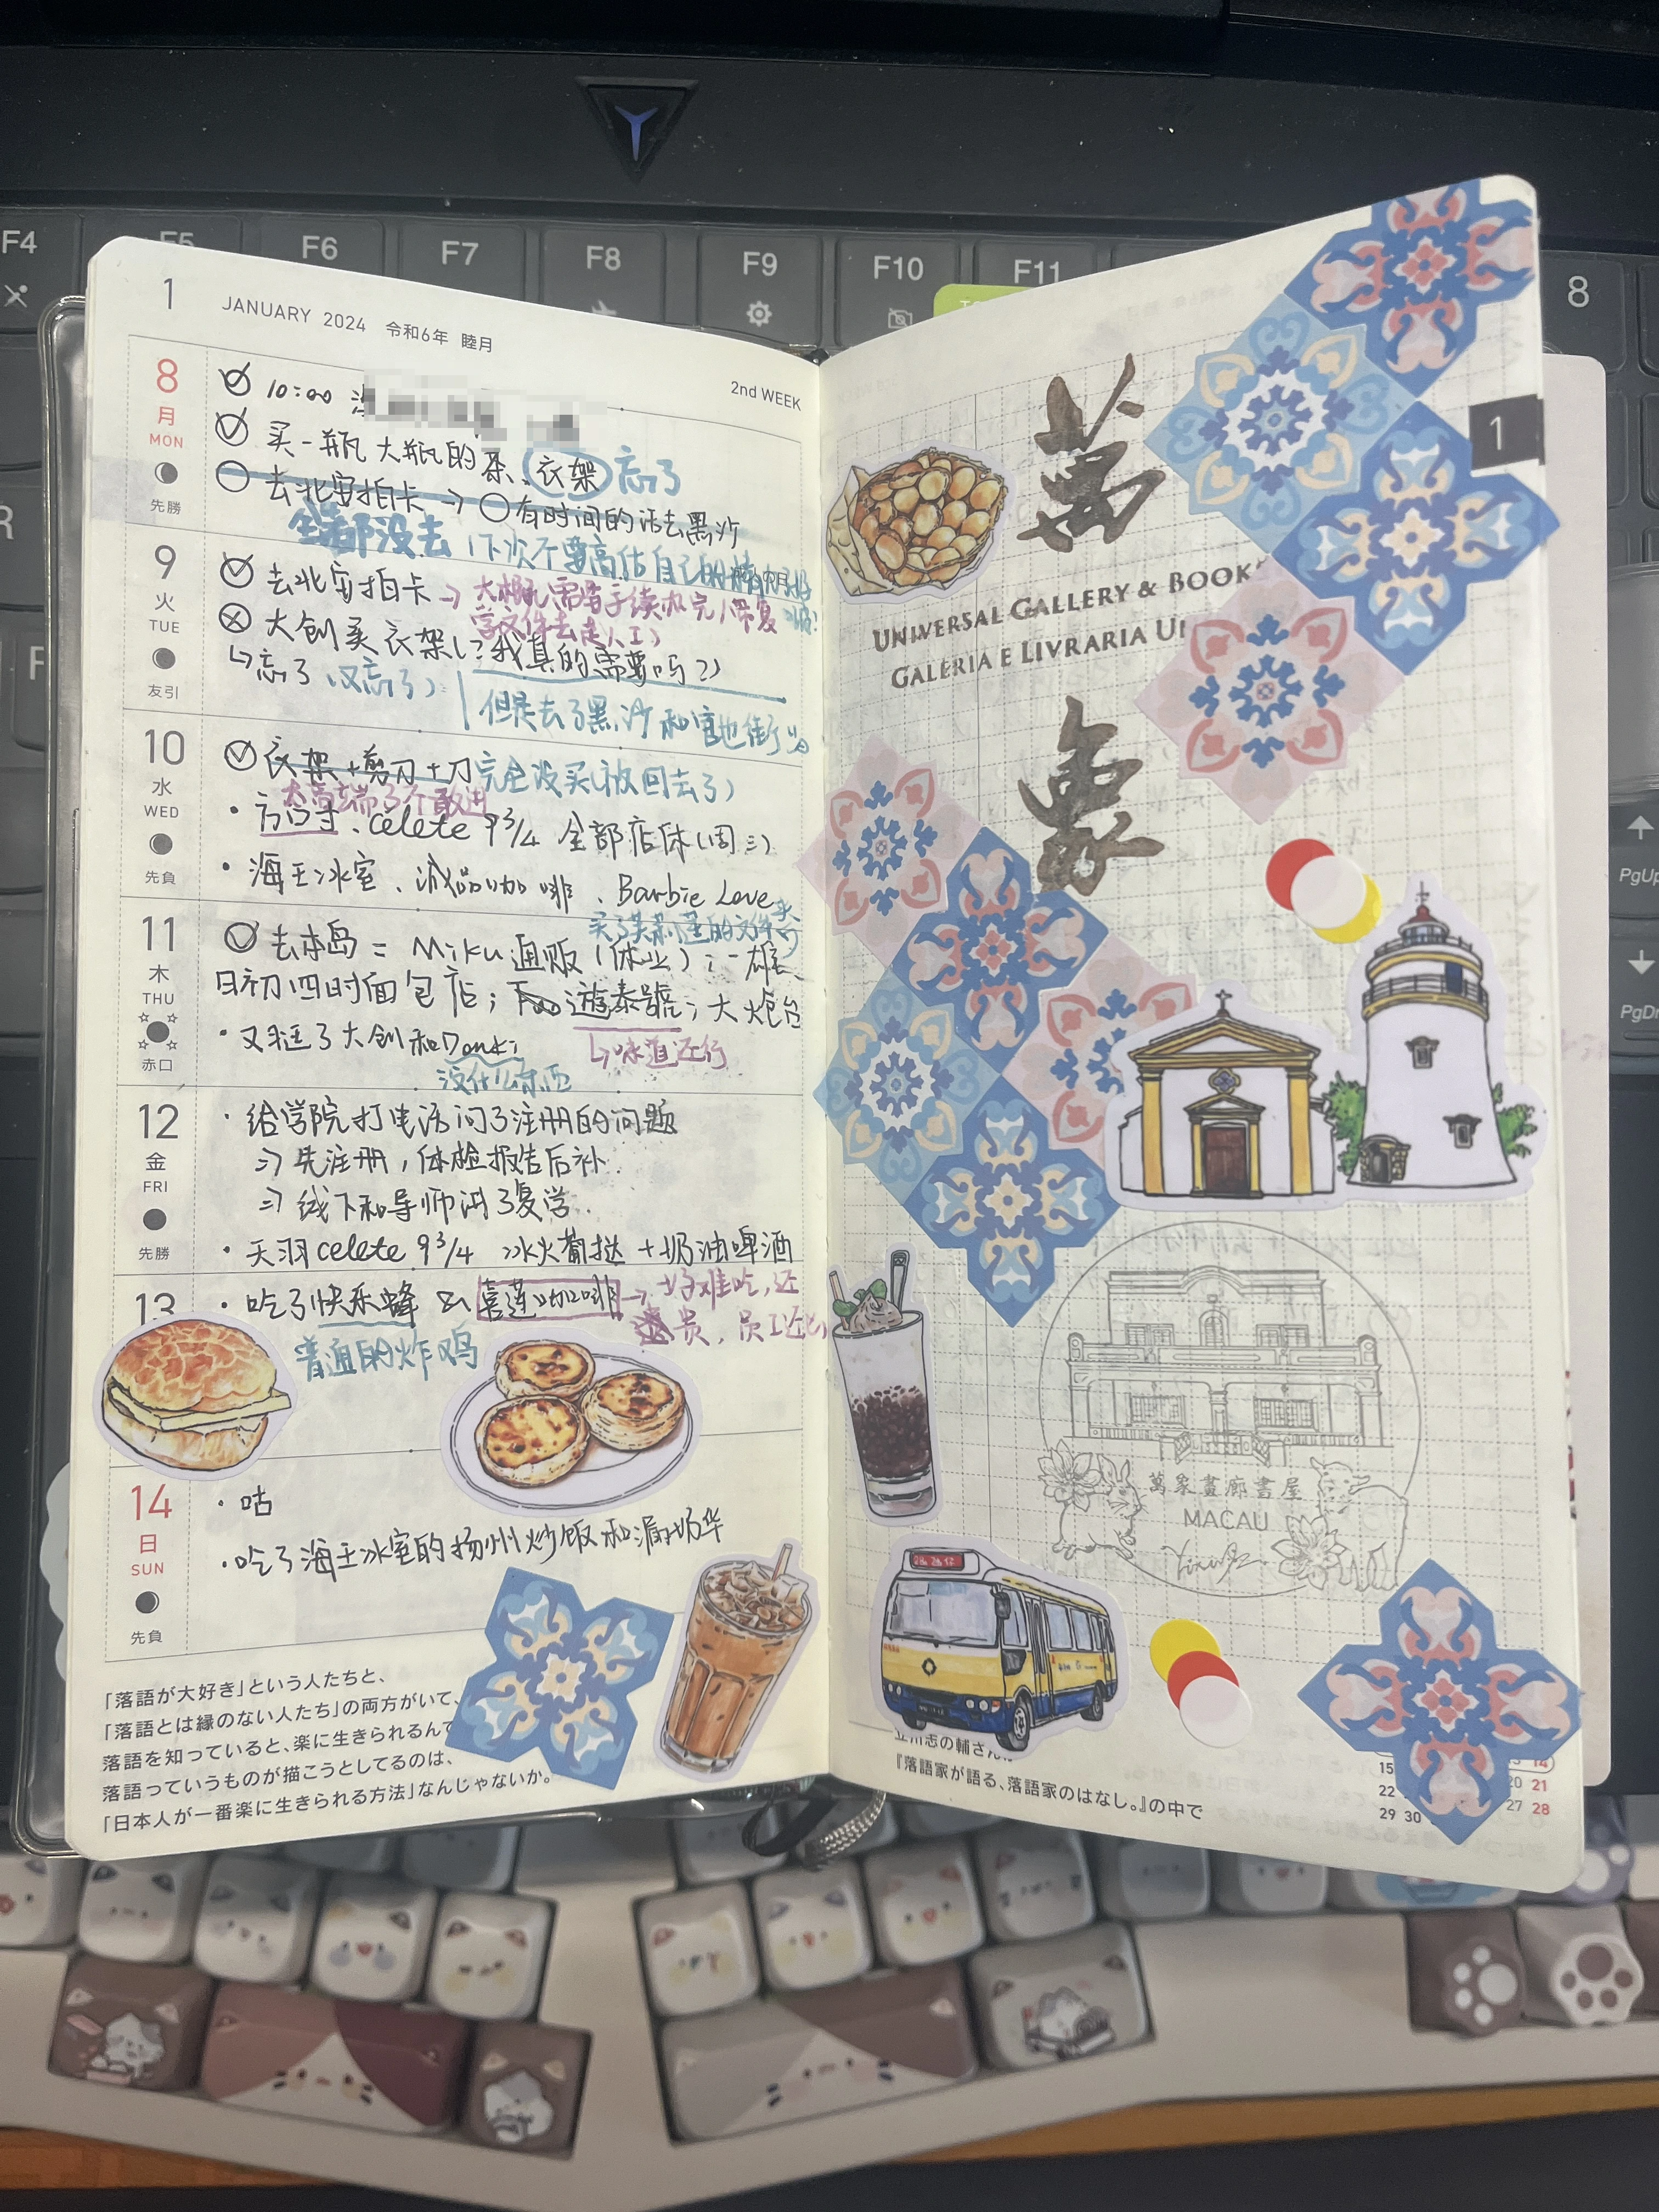 F4
F5
F6
F7
F8
F9
F10
F11
8
R
F
PgUp
PgDn
1 JANUARY 2024 令和6年 睦月
2nd WEEK
8
月
MON
先勝
10:00
买一瓶大瓶的茶、衣架 忘了
去北安拍卡 → 有时间的话去黑沙
全都没去（下次不要高估自己的
9
火
TUE
友引
去北安拍卡 →
大创买衣架（？我真的需要吗？）
↳忘了（又忘了）
但是去了黑沙和官也街
10
水
WED
先負
衣架+剪刀+刀 完全没买（放回去了）
太高端了不敢进
方口寸、celete 9¾ 全部店休（周三）
海王冰室、咖啡、Barbie Love
11
木
THU
赤口
去本岛 = Miku通贩（休业）；一雄、
日初四时面包店；遊泰號；大炮台
↳味道还行
又逛了大创和Donki
没什么东西
12
金
FRI
先勝
给学院打电话问了注册的问题
⇒ 先注册，体检报告后补
⇒ 线下和导师聊了复学
天羽celete 9¾ 冰火葡挞+奶油啤酒
13
吃了快乐蜂 & 喜莲咖啡 → 好难吃，还
贵，员工还
普通的炸鸡
14
日
SUN
先負
咕
吃了海王冰室的扬州炒饭和漏奶华
「落語が大好き」という人たちと、
「落語とは縁のない人たち」の両方がいて、
落語を知っていると、楽に生きられるんで
落語っていうものが描こうとしてるのは、
「日本人が一番楽に生きられる方法」なんじゃないか。
1
萬
UNIVERSAL GALLERY & BOOK
GALERIA E LIVRARIA U
象
萬象畫廊書屋
MACAU
立川志の輔さんが
『落語家が語る、落語家のはなし。』の中で
14
15 20 21
22 27 28
29 30